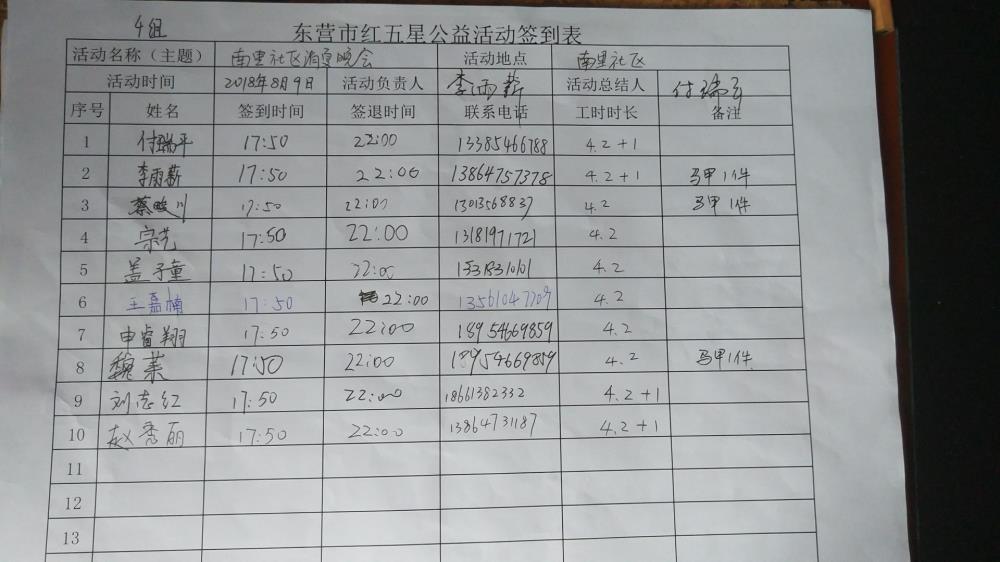 4组
东营市红五星公益活动签到表
活动名称（主题） 南里社区消夏晚会 活动地点 南里社区
活动时间 2018年8月9日 活动负责人 李雨薪 活动总结人 付瑞
序号 姓名 签到时间 签退时间 联系电话 工时时长 备注
1 付瑞平 17:50 22:00 13385466788 4.2+1
2 李雨薪 17:50 22:00 13864757378 4.2+1 马甲1件
3 蔡峻川 17:50 22:00 13013568837 4.2 马甲1件
4 17:50 22:00 13181971721 4.2
5 盖子童 17:50 22:00 4.2
6 王嘉楠 17:50 22:00 13561047709 4.2
7 申睿翔 17:50 22:00 18954669859 4.2
8 魏莱 17:50 22:00 18954669859 4.2 马甲1件
9 刘志红 17:50 22:00 18661382332 4.2+1
10 赵秀丽 17:50 22:00 13864731187 4.2+1
11
12
13